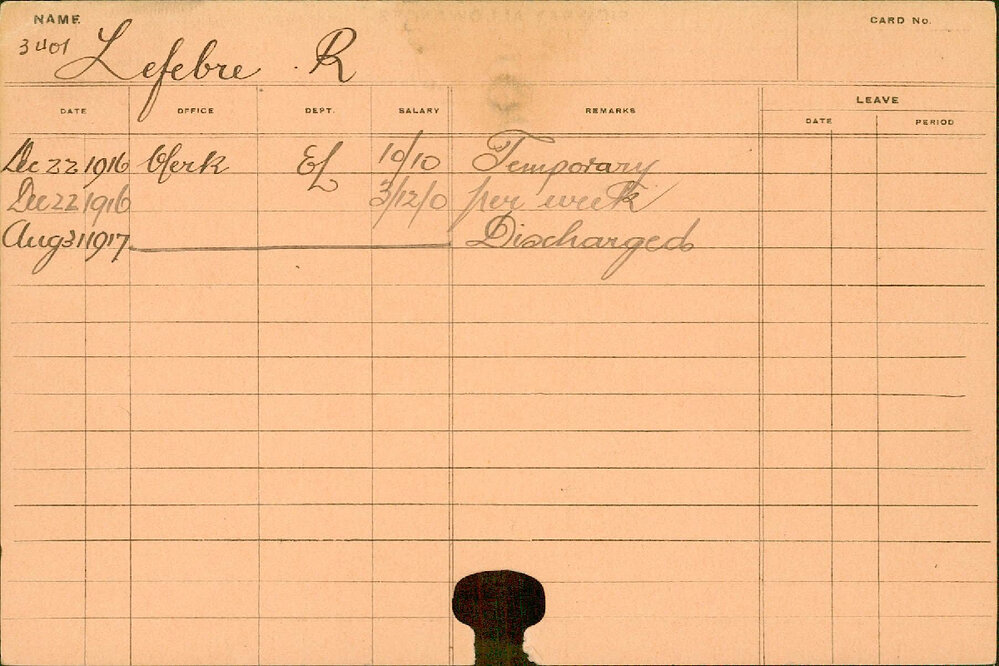 NAME
CARD No.
3401 Lefebre R
DATE OFFICE DEPT. SALARY REMARKS LEAVE
DATE PERIOD
Dec 22 1916 Clerk EL 10/10 Temporary
Dec 22 1916 3/12/0 per week
Aug 31 1917 Discharged